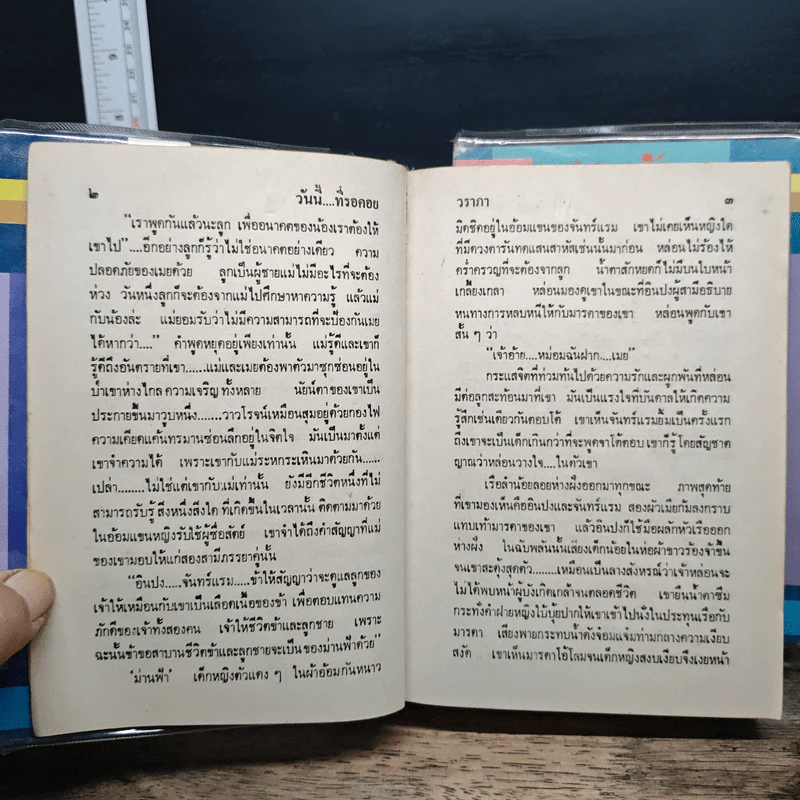 ๒ วันนี้....ที่รอคอย
"เราพูดกันแล้วนะลูก เพื่ออนาคตของน้องเราต้องให้
เขาไป"....อีกอย่างลูกก็รู้ว่าไม่ใช่อนาคตอย่างเดียว ความ
ปลอดภัยของเมยด้วย ลูกเป็นผู้ชายแม่ไม่มีอะไรที่จะต้อง
ห่วง วันหนึ่งลูกก็จะต้องจากแม่ไปศึกษาหาความรู้ แล้วแม่
กับน้องล่ะ แม่ยอมรับว่าไม่มีความสามารถที่จะป้องกันเมย
ได้หากว่า...." คำพูดหยุดอยู่เพียงเท่านั้น แม่รู้ดีและเขาก็
รู้ดีถึงอันตรายที่เขา......แม่และเมยต้องพาตัวมาซุกซ่อนอยู่ใน
ป่าเขาห่างไกลความเจริญทั้งหลาย นัยน์ตาของเขาเป็น
ประกายขึ้นมาวูบหนึ่ง.......วาวโรจน์เหมือนสุมอยู่ด้วยกองไฟ
ความเคียดแค้นทรมานซ่อนลึกอยู่ในจิตใจ มันเป็นมาตั้งแต่
เขาจำความได้ เพราะเขากับแม่ระหกระเหินมาด้วยกัน......
เปล่า........ไม่ใช่แต่เขากับแม่เท่านั้น ยังมีอีกชีวิตหนึ่งที่ไม่
สามารถรับรู้สิ่งหนึ่งสิ่งใด ที่เกิดขึ้นในเวลานั้น ติดตามมาด้วย
ในอ้อมแขนหญิงรับใช้ผู้ซื่อสัตย์ เขาจำได้ถึงคำสัญญาที่แม่
ของเขามอบให้แก่สองสามีภรรยาคู่นั้น
"อินปง.....จันทร์แรม.....ข้าให้สัญญาว่าจะดูแลลูกของ
เจ้าให้เหมือนกับเขาเป็นเลือดเนื้อของข้า เพื่อตอบแทนความ
ภักดีของเจ้าทั้งสองคน เจ้าให้ชีวิตข้าและลูกชาย เพราะ
ฉะนั้นข้าขอสาบานชีวิตข้าและลูกชายจะเป็นของม่านฟ้าด้วย"
'ม่านฟ้า' เด็กหญิงตัวแดง ๆ ในผ้าอ้อมกันหนาว
วราภา ๓
มิดชิดอยู่ในอ้อมแขนของจันทร์แรม เขาไม่เคยเห็นหญิงใด
ที่มีดวงตารันทดแสนสาหัสเช่นนั้นมาก่อน หล่อนไม่ร้องไห้
คร่ำครวญที่จะต้องจากลูก น้ำตาสักหยดก็ไม่มีบนใบหน้า
เกลี้ยงเกลา หล่อนมองดูเขาในขณะที่อินปงผู้สามีอธิบาย
หนทางการหลบหนีให้กับมารดาของเขา หล่อนพูดกับเขา
สั้น ๆ ว่า
"เจ้าอ้าย....หม่อมฉันฝาก....เมย"
กระแสจิตที่ท่วมท้นไปด้วยความรักและผูกพันที่หล่อน
มีต่อลูกสะท้อนมาที่เขา มันเป็นแรงใจที่บันดาลให้เกิดความ
รู้สึกเช่นเดียวกันตอบโต้ เขาเห็นจันทร์แรมยิ้มเป็นครั้งแรก
ถึงเขาจะเป็นเด็กเกินกว่าที่จะพูดจาโต้ตอบ เขาก็รู้โดยสัญชาต
ญาณว่าหล่อนวางใจ....ในตัวเขา
เรือลำน้อยลอยห่างฝั่งออกมาทุกขณะ ภาพสุดท้าย
ที่เขามองเห็นคืออินปงและจันทร์แรม สองผัวเมียก้มลงกราบ
แทบเท้ามารดาของเขา แล้วอินปงก็ใช้มือผลักหัวเรือออก
ห่างฝั่ง ในฉับพลันนั้นเสียงเด็กน้อยในห่อผ้าขาวร้องจ้าขึ้น
จนเขาสะดุ้งสุดตัว.......เหมือนเป็นลางสังหรณ์ว่าเจ้าหล่อนจะ
ไม่ได้พบหน้าผู้บังเกิดเกล้าจนตลอดชีวิต เขายืนน้ำตาซึม
กระทั่งคำฝายหญิงใบ้บุ้ยปากให้เขาเข้าไปนั่งในประทุนเรือกับ
มารดา เสียงพายกระทบน้ำดังจ๋อมแจ๋มท่ามกลางความเงียบ
สงัด เขาเห็นมารดาไอ้โลมจนเด็กหญิงสงบเงียบจึงเงยหน้า